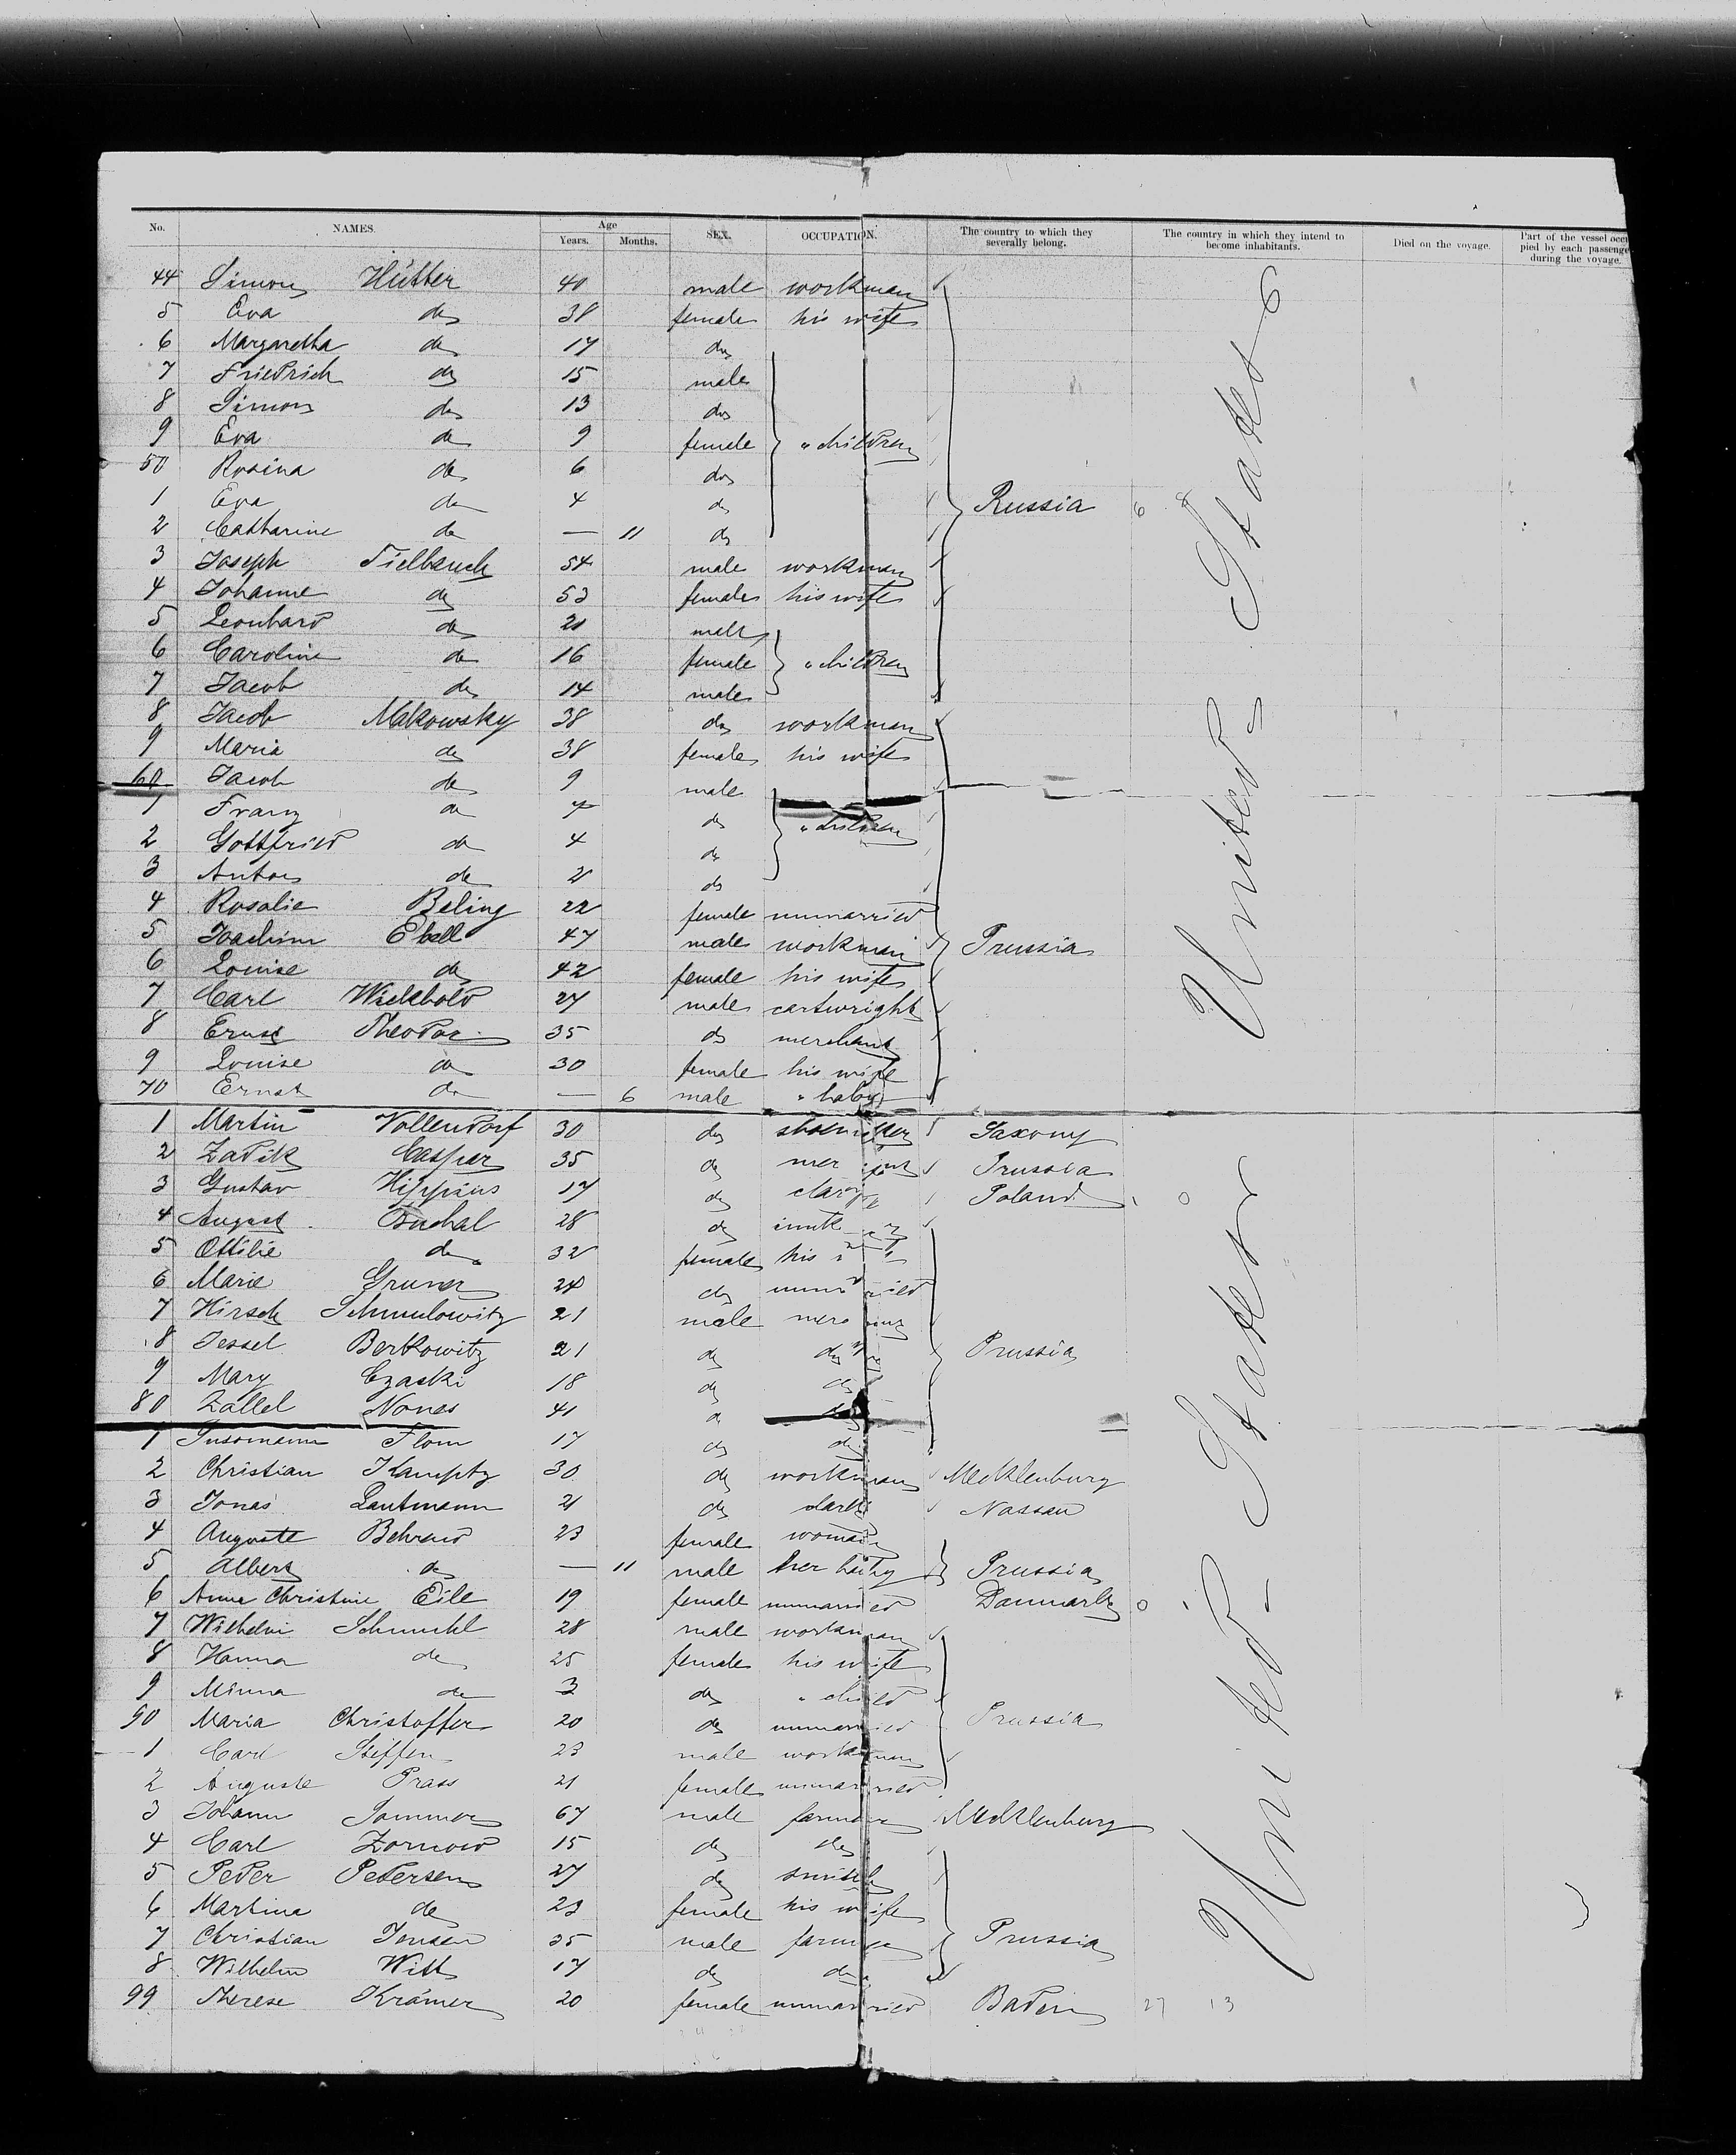 No. NAMES. Age Years. Months. SEX. OCCUPATION. The country to which they severally belong. The country in which they intend to become inhabitants. Died on the voyage. Part of the vessel occupied by each passenger during the voyage.
44 Simon Hütter 40 male workman
5 Eva do 38 female his wife
6 Margaretha do 17 do
7 Friedrich do 15 male
8 Simon do 13 do
9 Eva do 9 female " children
50 Rosina do 6 do
1 Eva do 4 do Russia 6 8
2 Catharine do — 11 do
3 Joseph Tielbauch 54 male workman
4 Johanne do 53 female his wife
5 Leonhard do 21 male
6 Caroline do 16 female " children
7 Jacob do 14 male
8 Jacob Makowsky 38 do workman
9 Maria do 38 female his wife
60 Jacob do 9 male
1 Franz do 7 do " children
2 Gottfried do 4 do
3 Anton do 2 do
4 Rosalie Beling 22 female unmarried
5 Joachim Ebell 47 male workman Prussia
6 Louise do 42 female his wife
7 Carl Wickbold 27 male cartwright
8 Ernst Theodor 35 do merchant
9 Louise do 30 female his wife
70 Ernst do — 6 male " baby
United States
1 Martin Vollendorf 30 do Saxony
2 Zadik Caspar 35 do Prussia
3 Gustav Hippius 17 do Poland 1 0
4 August Buchal 28 do
5 Ottilie do 32 female his
6 Marie Gruner 24 do unmarried
7 Hirsch Schmulowitz 21 male
8 Jessel Berkowitz 21 do do Prussia
9 Mary Czaski 18 do do
80 Zallel Nones 41 do do
1 Flom 17 do do
2 Christian Kamptz 30 do workman Mecklenburg
3 Jonas Lautmann 21 do clark Nassau
4 Auguste Behrend 23 female woman
5 Albert do — 11 male her baby Prussia
6 Anne Christine Eile 19 female unmarried Danmark 0 1
7 Wilhelm Schmuhl 28 male workman
8 Hanna do 25 female his wife
9 Minna do 3 do " child
90 Maria Christoffer 20 do unmarried Prussia
1 Carl Steffen 23 male workman
2 Auguste Prass 21 female unmarried
3 Johann Sommer 67 male farmer Mecklenburg
4 Carl Zornow 15 do do
5 Peder Pedersen 27 do smith
6 Martine do 23 female his wife
7 Christian Jensen 35 male farmer Prussia
8 Wilhelm Witt 17 do do
99 Therese Krämer 20 female unmarried Baden 27 13
United States